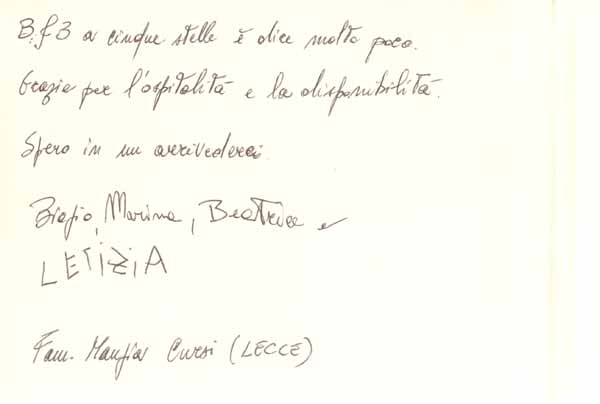 B.f 3 a cinque stelle è dice molto poco.
Grazie per l'ospitalità e la disponibilità.
Spero in un arrivederci.
Biagio, Marina, Beatrice e
LETIZIA
Fam. (LECCE)